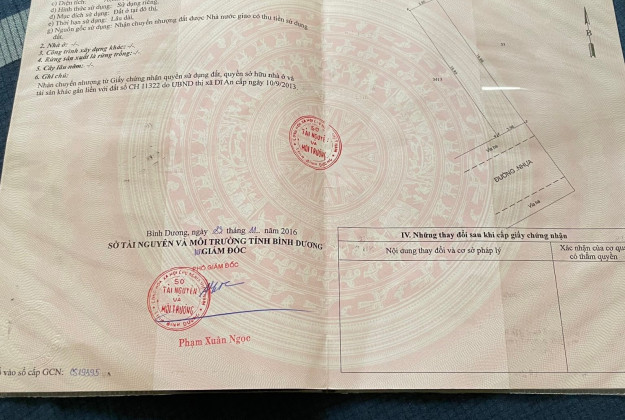 c) Diện tích:
d) Hình thức sử dụng: Sử dụng riêng,
đ) Mục đích sử dụng: Đất ở tại đô thị,
e) Thời hạn sử dụng: Lâu dài,
g) Nguồn gốc sử dụng: Nhận chuyển nhượng đất được Nhà nước giao có thu tiền sử dụng
đất.
2. Nhà ở: -/-.
3. Công trình xây dựng khác: -/-.
4. Rừng sản xuất là rừng trồng: -/-.
5. Cây lâu năm: -/-.
6. Ghi chú:
Nhận chuyển nhượng từ Giấy chứng nhận quyền sử dụng đất, quyền sở hữu nhà ở và
tài sản khác gắn liền với đất số CH 11322 do UBND thị xã Dĩ An cấp ngày 10/9/2013.
SỞ
TÀI NGUYÊN
VÀ
MÔI TRƯỜNG
Bình Dương, ngày tháng năm 2016
SỞ TÀI NGUYÊN VÀ MÔI TRƯỜNG TỈNH BÌNH DƯƠNG
GIÁM ĐỐC
PHÓ GIÁM ĐỐC
SỞ
TÀI NGUYÊN
VÀ
MÔI TRƯỜNG
Phạm Xuân Ngọc
vào sổ cấp GCN:
B
Vỉa hè
ĐƯỜNG NHỰA
Vỉa hè
IV. Những thay đổi sau khi cấp giấy chứng nhận
Nội dung thay đổi và cơ sở pháp lý
Xác nhận của cơ
có thẩm quyền